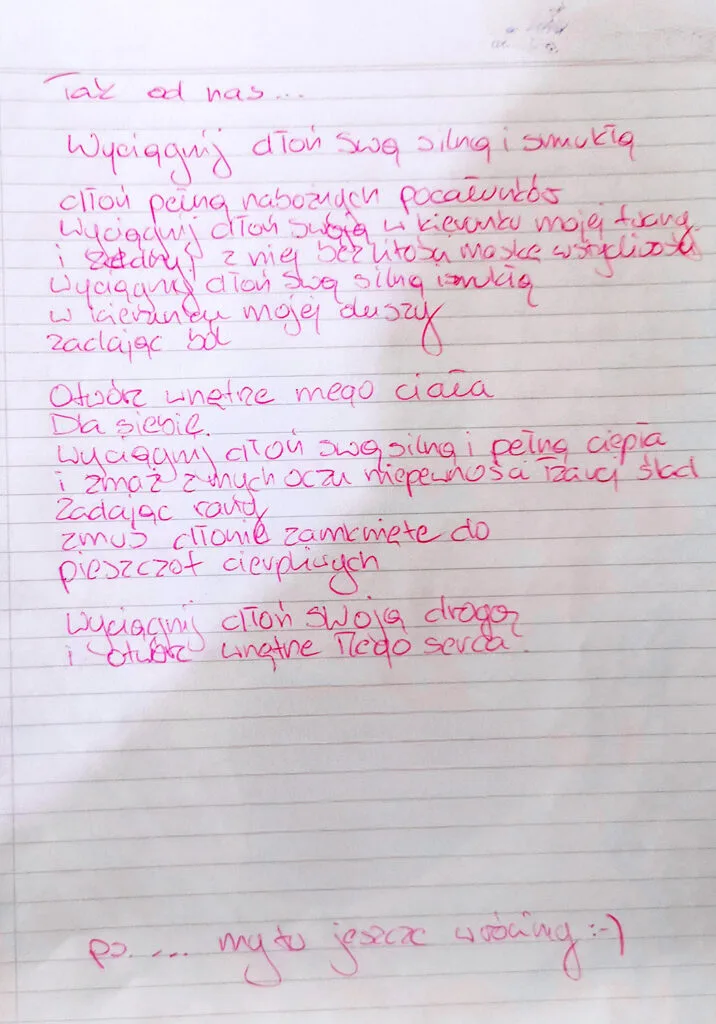 Tak od nas...
Wyciągnij dłoń swą silną i smukłą
dłoń pełną nabożnych pocałunków
Wyciągnij dłoń swoją w kierunku mojej twarzy
i zedrzyj z niej bez litości maskę wstydliwości
Wyciągnij dłoń swą silną i smukłą
w kierunku mojej duszy
zadając ból
Otwórz wnętrze mego ciała
Dla siebie.
Wyciągnij dłoń swą silną i pełną ciepła
i zmaż z mych oczu niepewności łzawy ślad
Zadając rany
zmuś dłonie zamknięte do
pieszczot cierpliwych
Wyciągnij dłoń swoją drogą
i otwórz wnętrze serca
ps. ... my tu jeszcze wrócimy :-)